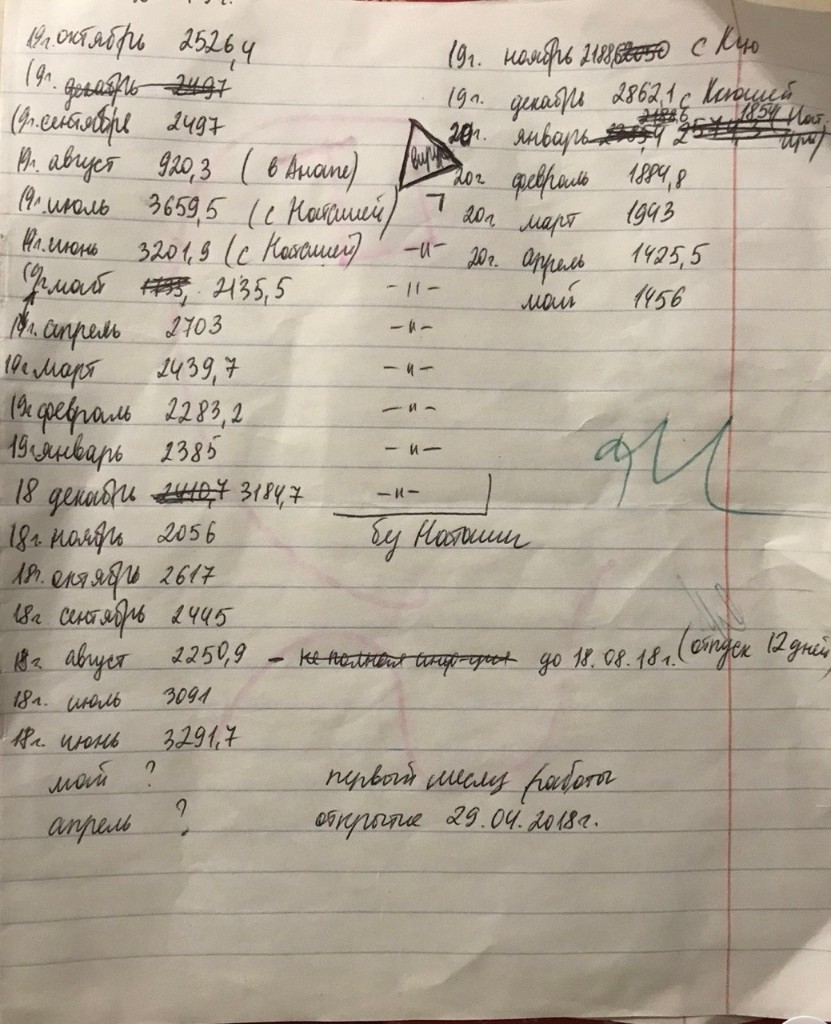 19г. октябрь 2526,4
19г. декабрь 2497
19г. сентябрь 2497
19г. август 920,3 (в Анапе)
19г. июль 3659,5 (с Наташей)
19г. июнь 3201,9 (с Наташей) -и-
19г май 2135,5 -и-
19г. апрель 2703 -и-
19г март 2439,7 -и-
19г февраль 2283,2 -и-
19г январь 2385 -и-
18 декабрь 2410,7 3184,7 -и-
без Наташи
18г. ноябрь 2056
18г. октябрь 2617
18г сентябрь 2445
18г август 2250,9 - до 18.08.18г. (отпуск 12 дней)
18г. июль 3091
18г. июнь 3291,7
май ? первый месяц работы
апрель ? открытие 29.04.2018г.
19г. ноябрь 2188, 2050 с Кую
19г. декабрь 2862,1 с Ксюшей
20г. январь 1854
20г февраль 1884,8
20г март 1943
20г. апрель 1425,5
май 1456